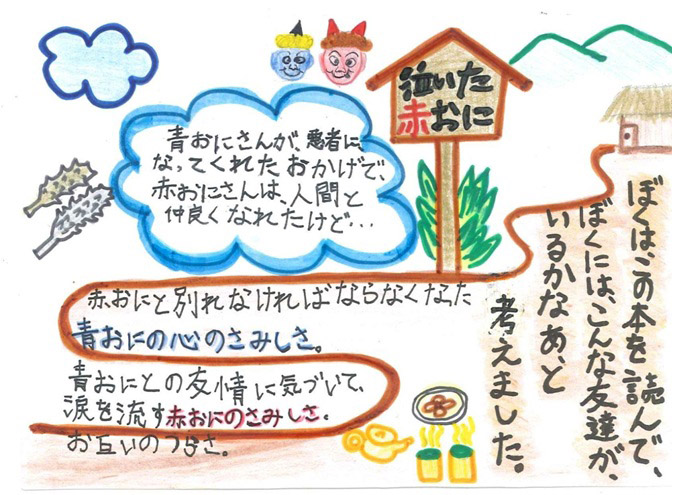 泣いた
赤おに
青おにさんが、悪者に
なってくれたおかげで、
赤おにさんは、人間と
仲良くなれたけど…
赤おにと別れなければならなくなった
青おにの心のさみしさ。
青おにとの友情に気づいて、
涙を流す赤おにのさみしさ。
お互いのつらさ。
ぼくは、この本を読んで、
ぼくには、こんな友達が、
いるかなあ、と
考えました。